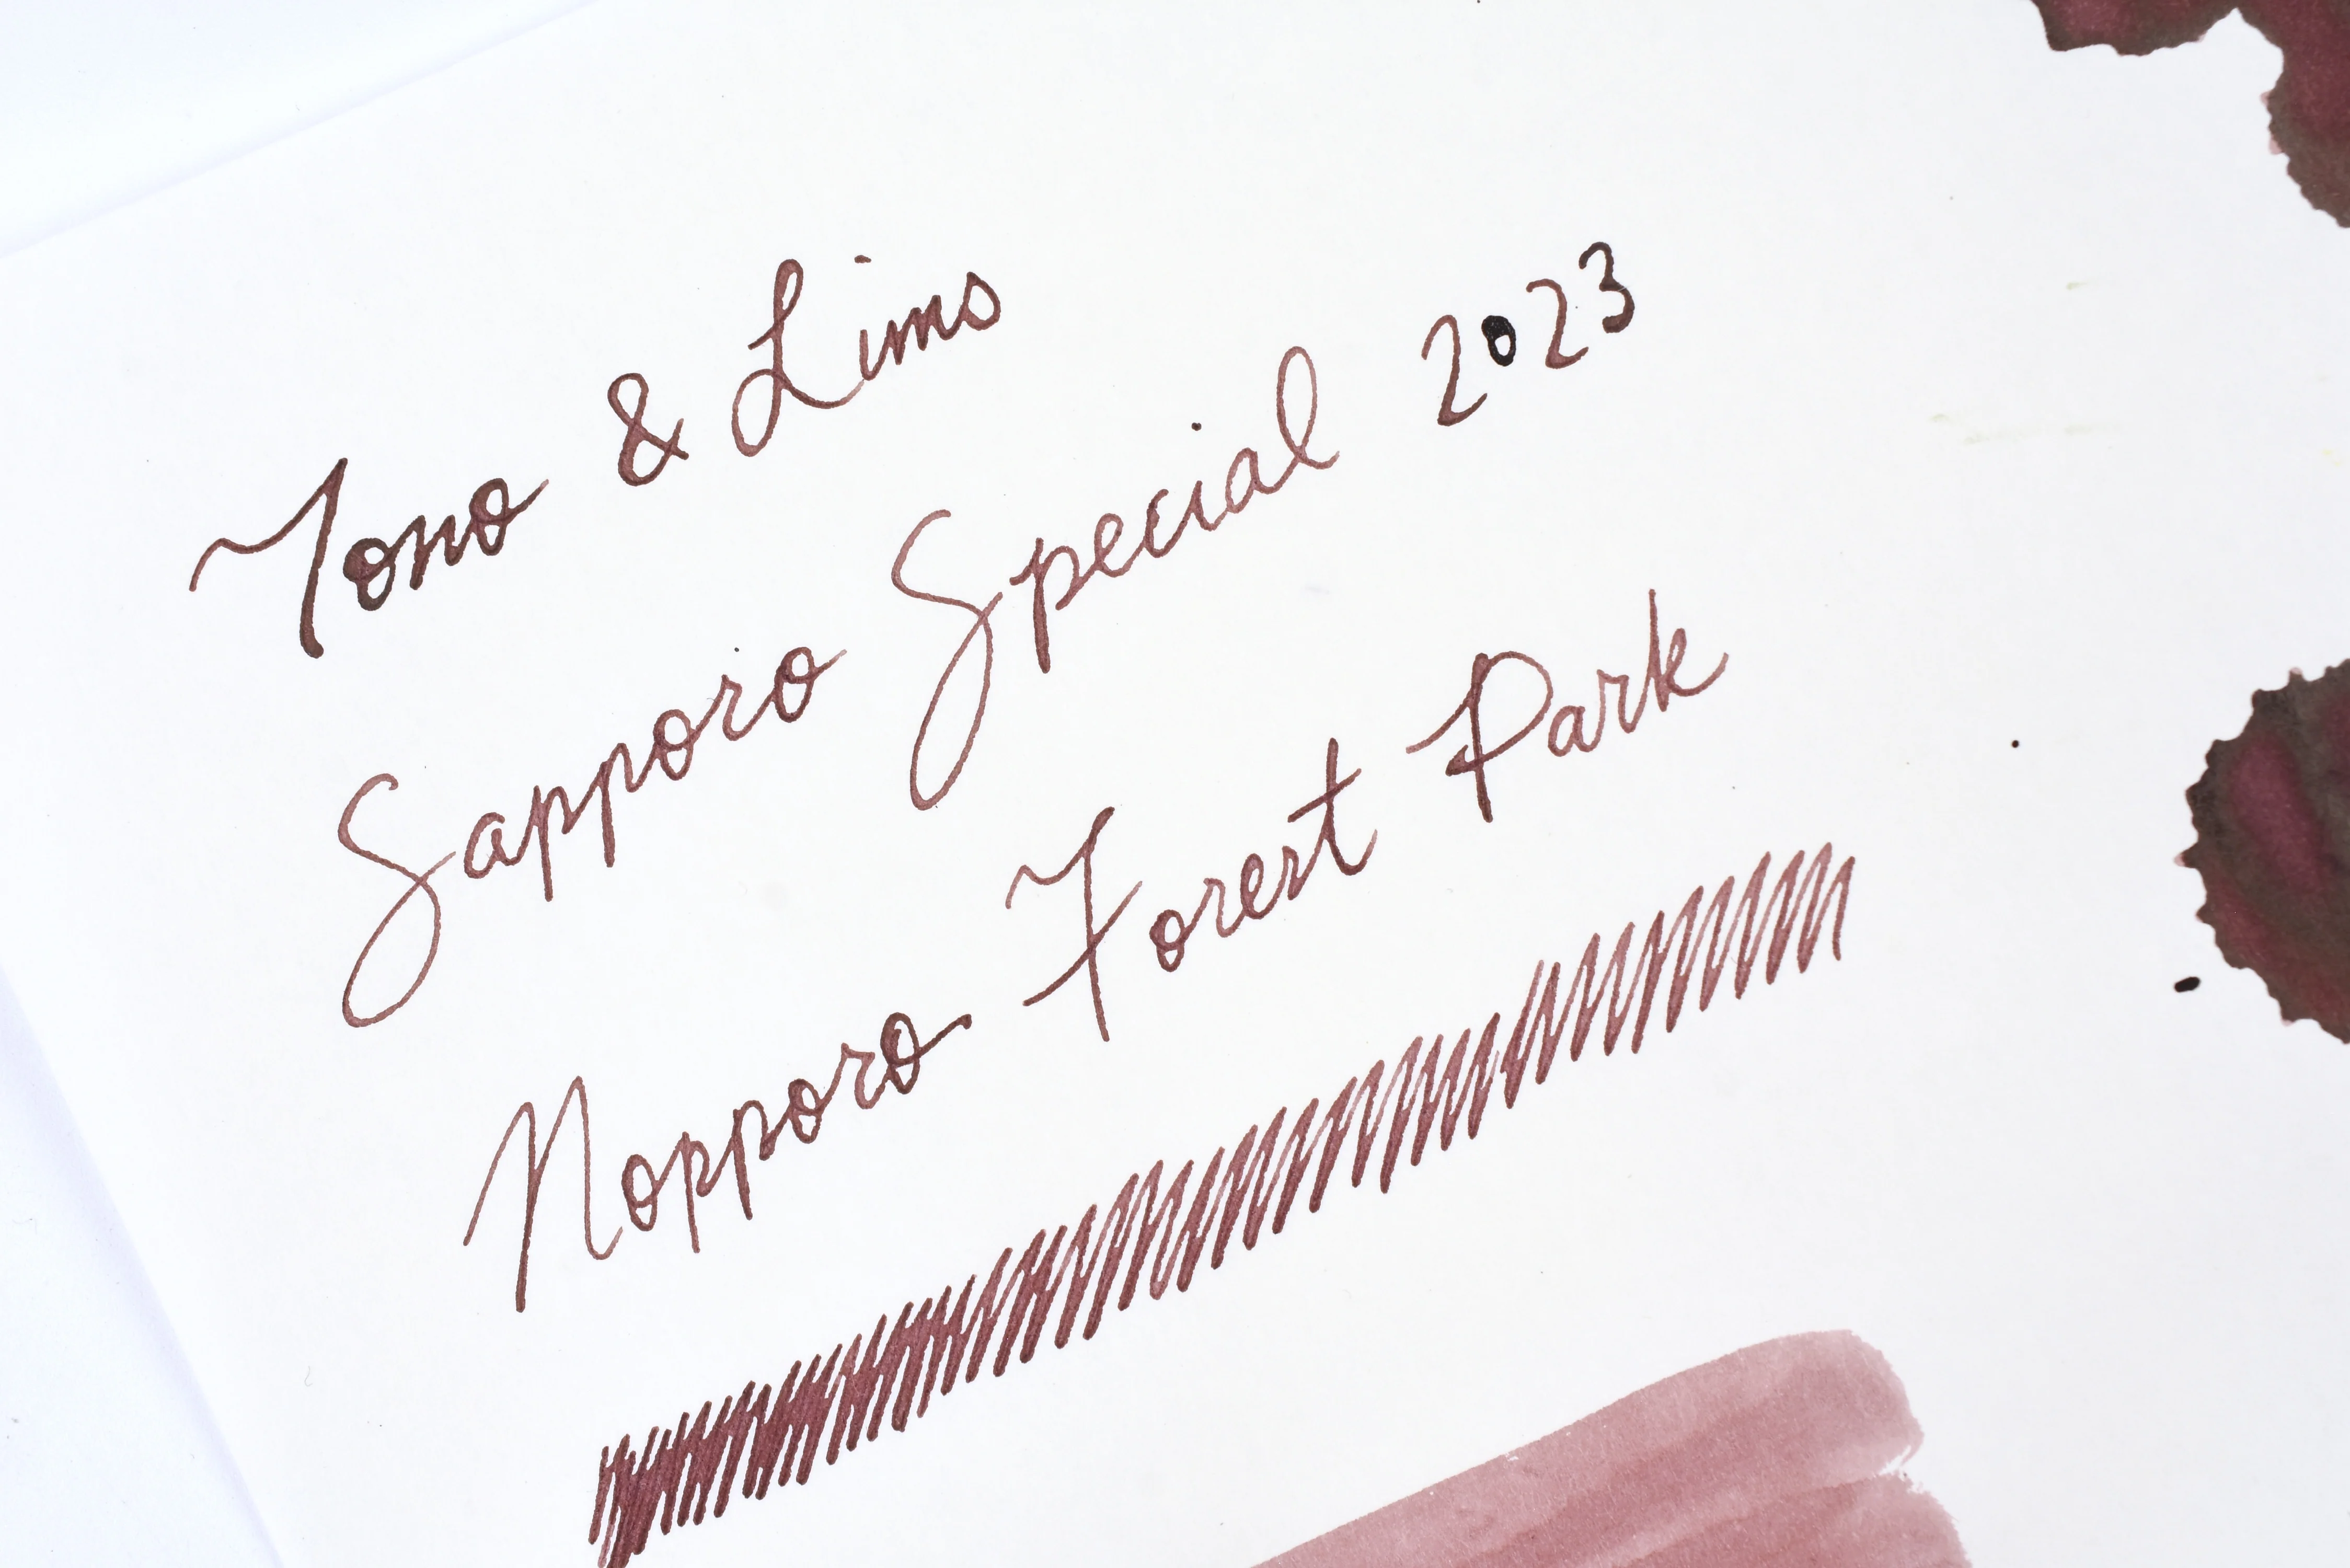 Tono & Lims
Sapporo Special 2023
Nopporo Forest Park